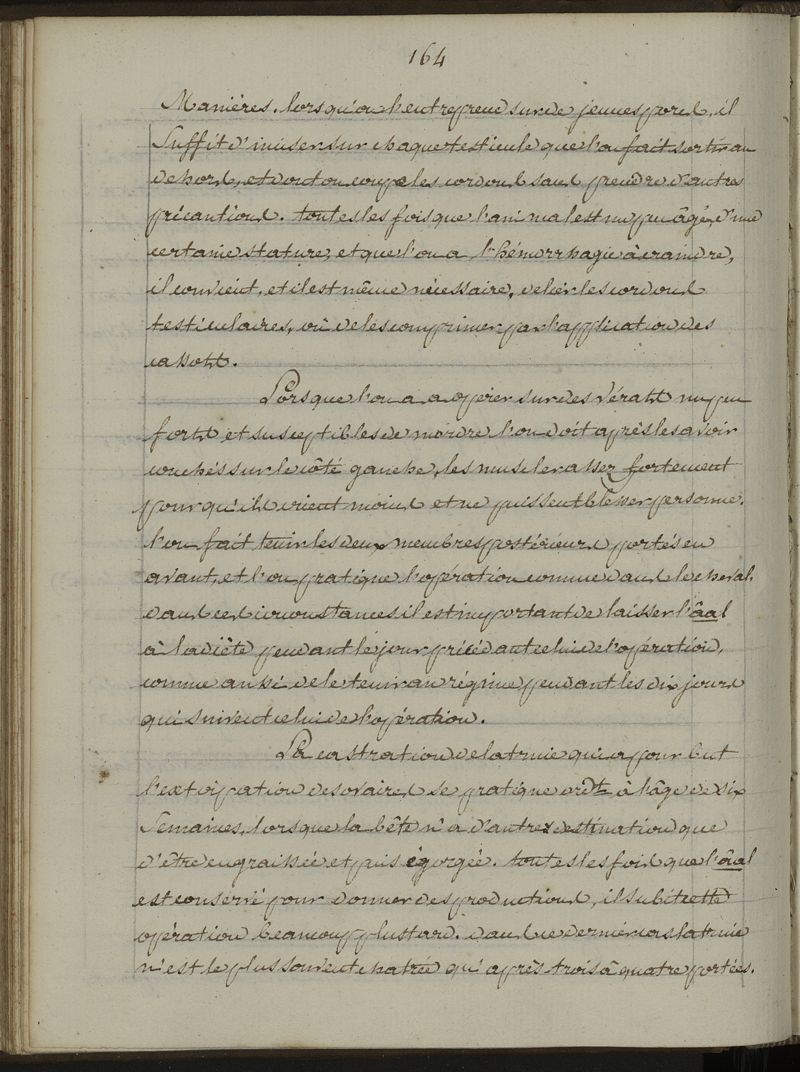 164
Manières. lorsqu'on l'entreprend sur de jeunes porcs, il
Suffit d'inciser sur chaque testicule que l'on fait sortir au
dehors, et dont on coupe les cordons sans prendre d'autres
précautions. toutes les fois que l'animal est un peu âgé, d'une
certaine stature, et que l'on a l'hémorrhagie à craindre,
il convient, et il est même nécessaire, de lier les cordons
testiculaires, ou de les comprimer par l'application des
cassots.
Lorsque l'on a a opérer sur des vérats un peu
forts et susceptibles de mordre l'on doit après les avoir
couchés sur le côté gauche, les museler assez fortement
pour qu'ils crient moins et ne puissent blesser personne.
l'on fait tenir les deux membres postérieurs portés en
avant, et l'on pratique l'opération comme dans le cheval.
dans ces circonstances il est important de laisser l'âal
à la diète pendant le jour précédant celui de l'opération,
comme aussi de le tenir au régime pendant les dix jours
qui suivent celui de l'opération.
La castration de la truie qui a pour but
l'extirpation des ovaires se pratique ordt à l'âge de six
Semaines, lorsque la bête n'a d'autre destination que
d'être engraissée et puis égorgée. toutes les fois que l'âal
est conservé pour donner des productions, il subit cette
opération beaucoup plus tard. dans ce dernier cas la truie
n'est le plus souvent chatrée qu'après trois à quatre portées.